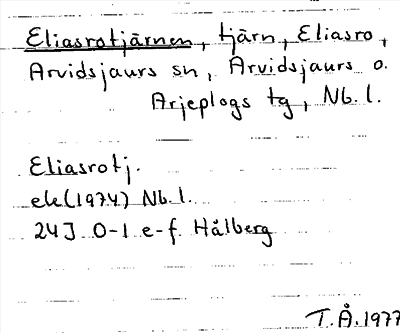 Eliasrotjärnen, tjärn, Eliasro,
Arvidsjaurs sn, Arvidsjaurs o.
Arjeplogs tg, Nb. l.
Eliasrotj.
ek(1974) Nb. l.
24J 0-1 e-f Hålberg
T.Å.1977